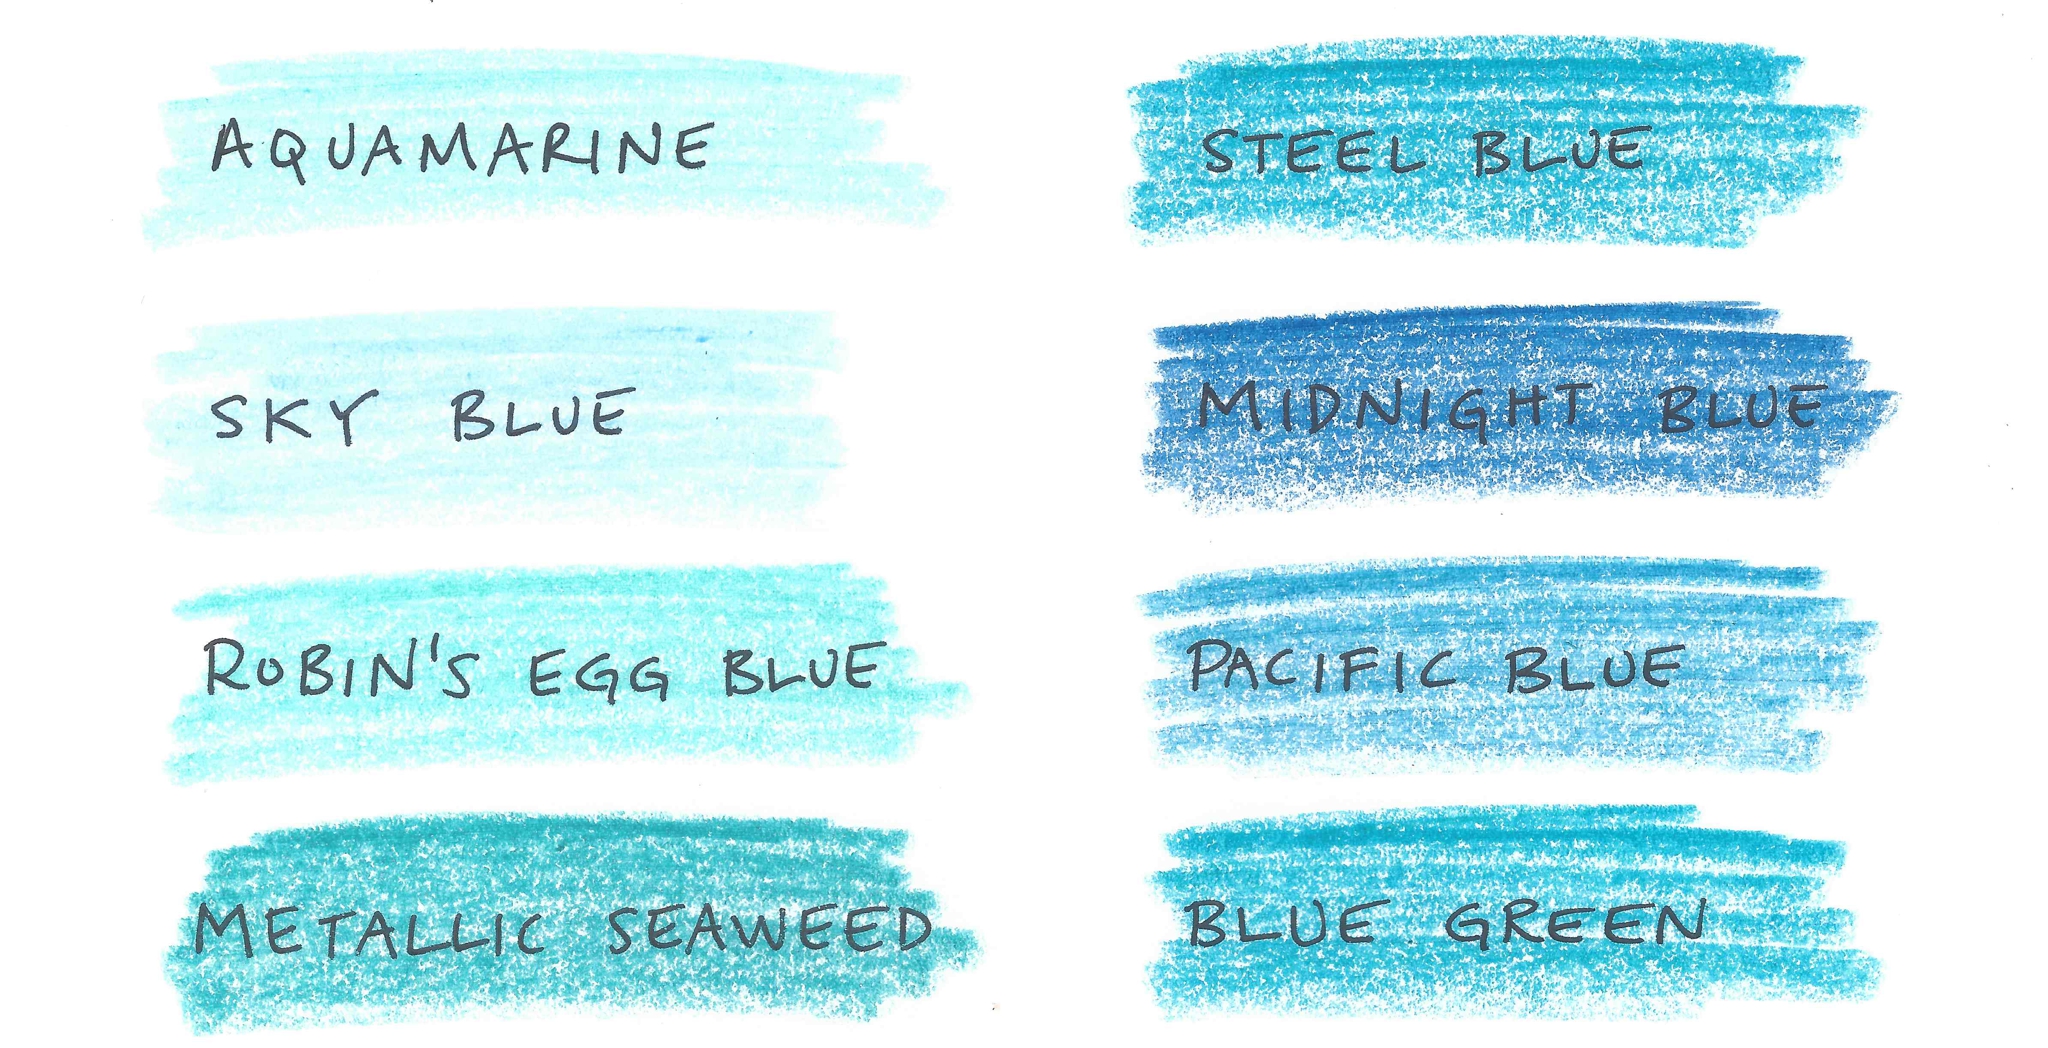 AQUAMARINE
SKY BLUE
ROBIN'S EGG BLUE
METALLIC SEAWEED
STEEL BLUE
MIDNIGHT BLUE
PACIFIC BLUE
BLUE GREEN